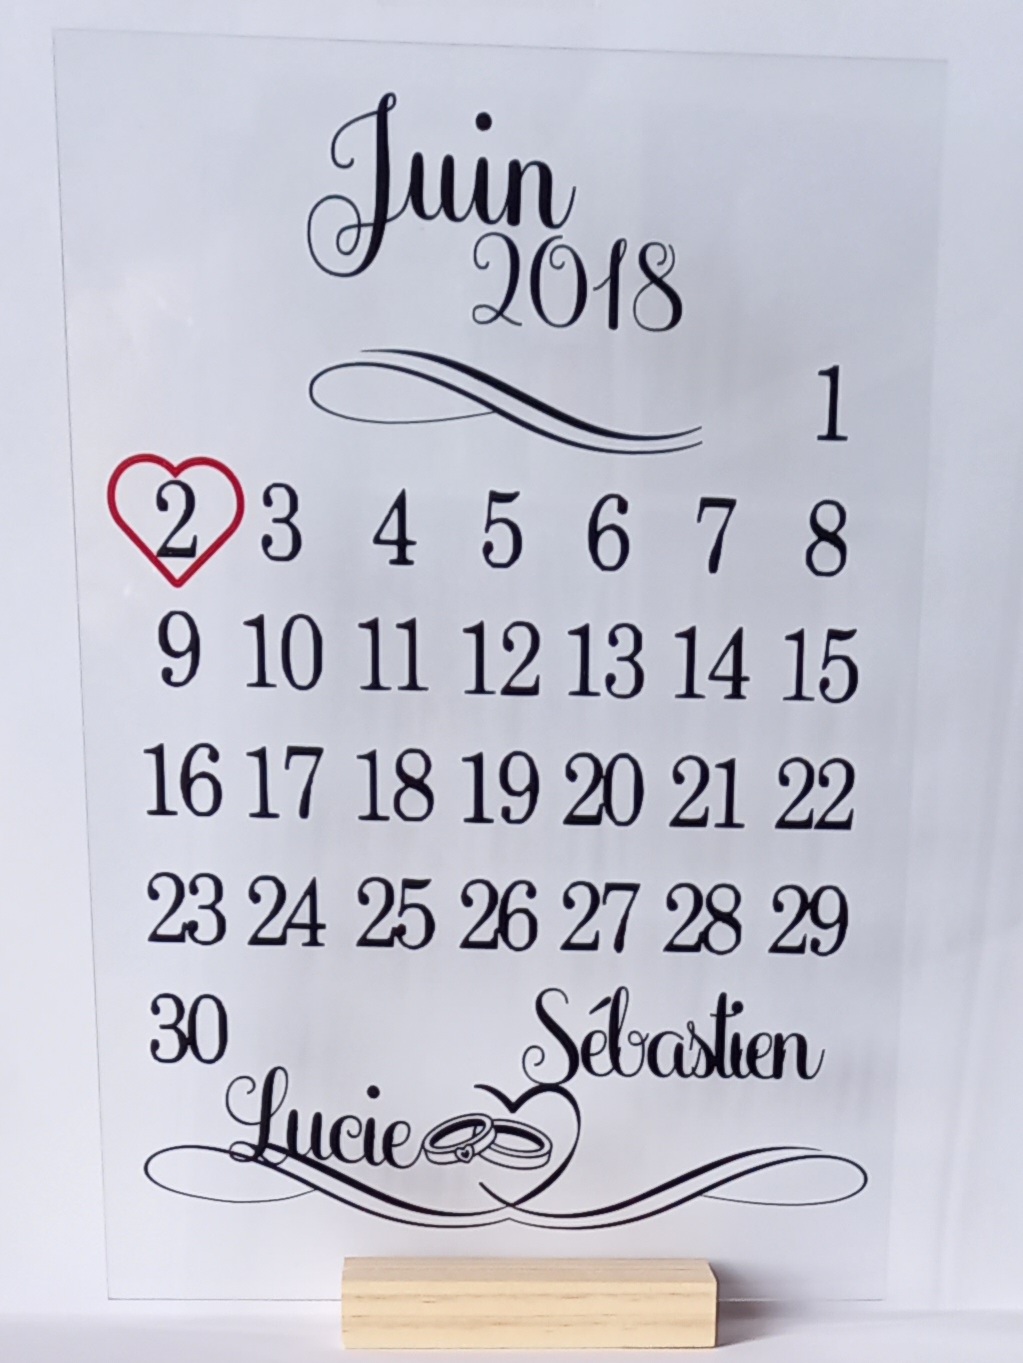 Juin
2018
1
2 3 4 5 6 7 8
9 10 11 12 13 14 15
16 17 18 19 20 21 22
23 24 25 26 27 28 29
30
Sébastien
Lucie